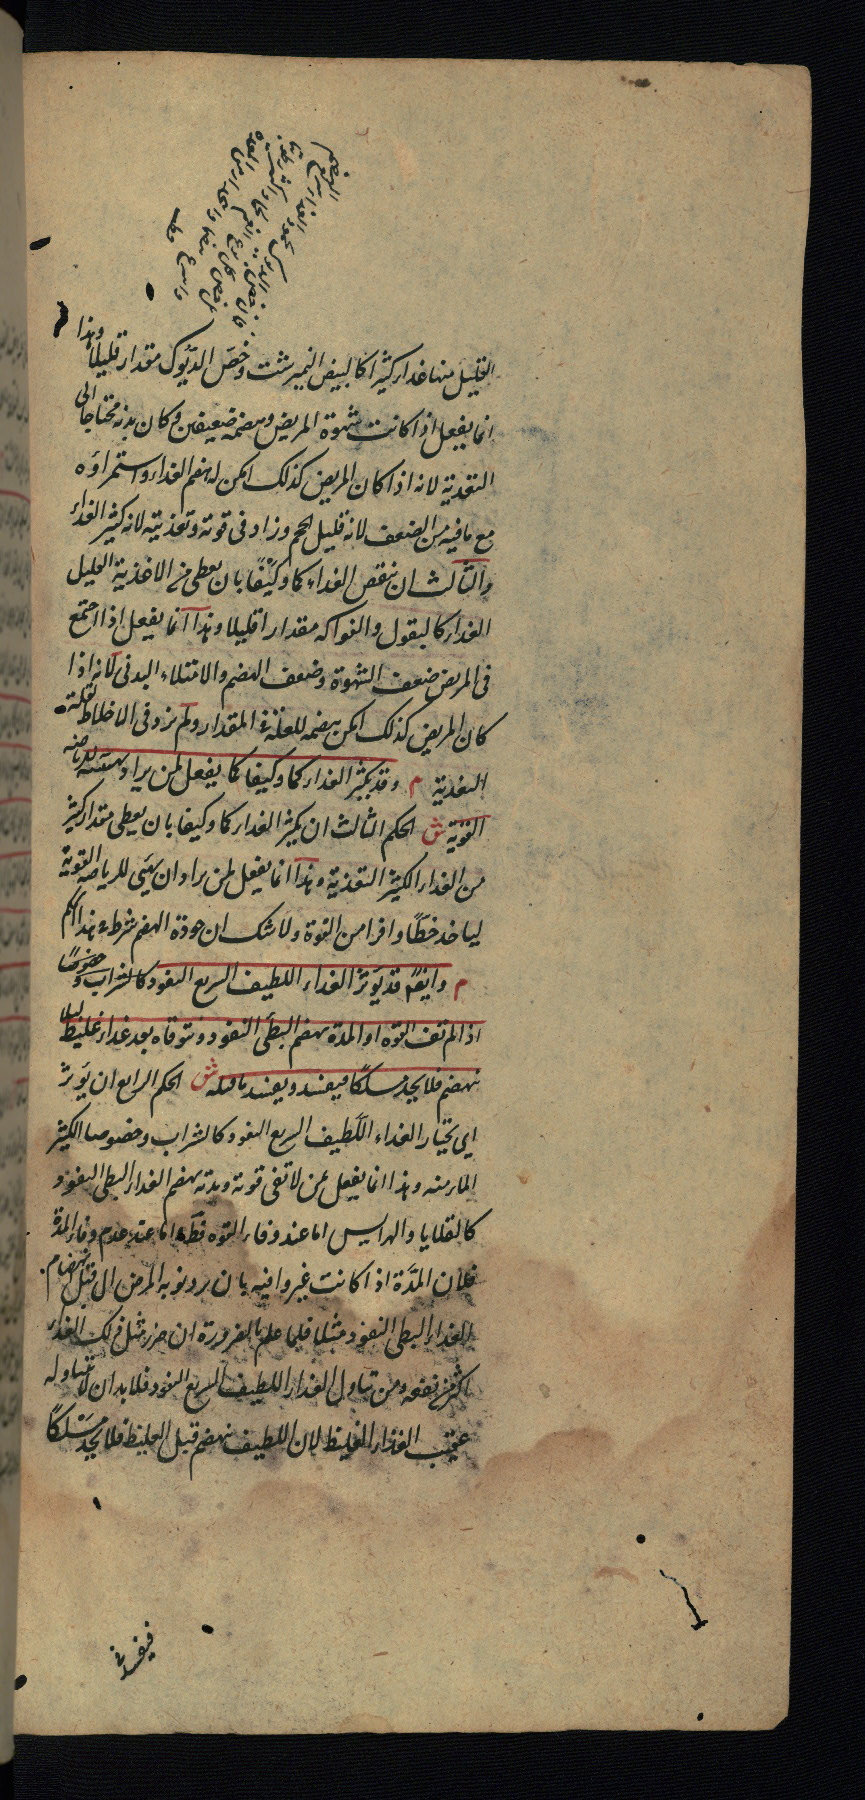 القليل منها غداء كثيرا كالبيض النميرشت وخصى الديوك مقدارا قليلا وهذا
انما يفعل اذا كانت شهوة المريض وهضمه ضعيفين وكان بدنه محتاجا الى
التغدية لانه اذا كان المريض كذلك امكن له هضم الغداء واستمراؤه
مع ما فيه من الضعف لانه قليل الحجم وزاد فى قوته وتغذيته لانه كثير الغداء
والثالث ان ينقص الغداء كما وكيفا بان يعطى من الاغذية القليل
الغداء كالبقول والفواكه مقدارا قليلا وهذا انما يفعل اذا اجتمع
فى المريض ضعف الشهوة وضعف الهضم والامتلاء البدنى لانه اذا
كان المريض كذلك امكن هضمه لقلة المقدار ولم يزد فى الاخلاط لقلة
التغدية م وقد يكثر الغداء كما وكيفا كما يفعل لمن يراد تهيئته للرياضه
القوية ش الحكم الثالث ان يكثر الغداء كما وكيفا بان يعطى مقدار كثير
من الغداء الكثير التغذية وهذا انما يفعل لمن يراد ان يهيى للرياضة القوية
لياخد حظا وافرا من القوة ولا شك ان جودة الهضم شرط فى هذا الحكم
م وايضا قد يؤثر الغداء اللطيف السريع النفود كالشراب وخصوصا
اذا لم تف القوه او المدة بهضم البطى النفود ونتوقاه بعد غداء غليظ لئلا
ينهضم فلا يجد مسلكا فيفسد ويفسد ما قبله ش الحكم الرابع ان يؤثر
اى يختار الغداء اللطيف السريع النفود كالشراب وخصوصا الكثير
الماء منه وهذا انما يفعل لمن لا تفى قوته ومدته بهضم الغداء البطى النفود
كالقلايا والهرايس اما عند وفاء القوه فظ واما عند عدم وفاء المدة
فلان المدة اذا كانت غير وافيه بان يرد نوبه المرض الى قبل انهضام
الغداء البطى النفود مثلا فلما علم بالضرورة ان ضرر مثل ذلك الغداء
اكثر من نفعه ومن تناول الغداء اللطيف السريع النفود فلا بد ان لا يتناوله
عقيب الغذاء الغليظ لان اللطيف ينهضم قبل الغليظ فلا يجد مسلكا
فيفسد